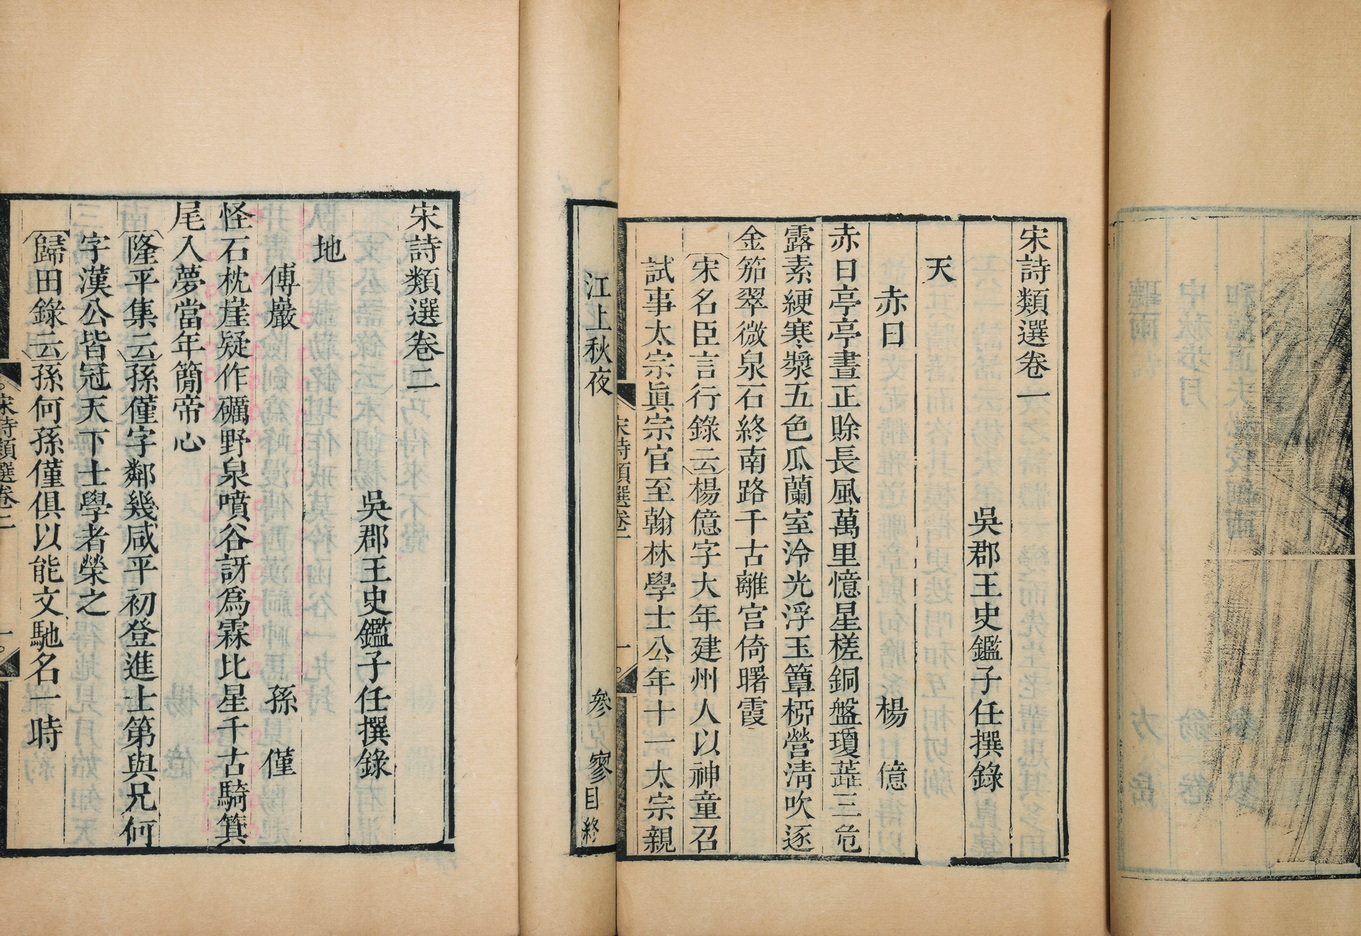 宋詩類選卷一
吳郡王史鑑子任撰錄
天
赤日　楊億
赤日亭亭晝正賒長風萬里憶星槎銅盤瓊蘂三危
露素綆寒漿五色瓜蘭室冷光浮玉簟桺營淸吹逐
金笳翠微泉石終南路千古離宮倚曙霞
宋名臣言行錄云楊億字大年建州人以神童召
試事太宗眞宗官至翰林學士公年十一太宗親
宋詩類選卷一
一
江上秋夜　參寥
目終
宋詩類選卷二
吳郡王史鑑子任撰錄
地
傅巖　孫僅
怪石枕崖疑作礪野泉噴谷訝爲霖比星千古騎箕
尾入夢當年簡帝心
隆平集云孫僅字鄰幾咸平初登進士第與兄何
字漢公皆冠天下士學者榮之
歸田錄云孫何孫僅俱以能文馳名一時
宋詩類選卷二
一